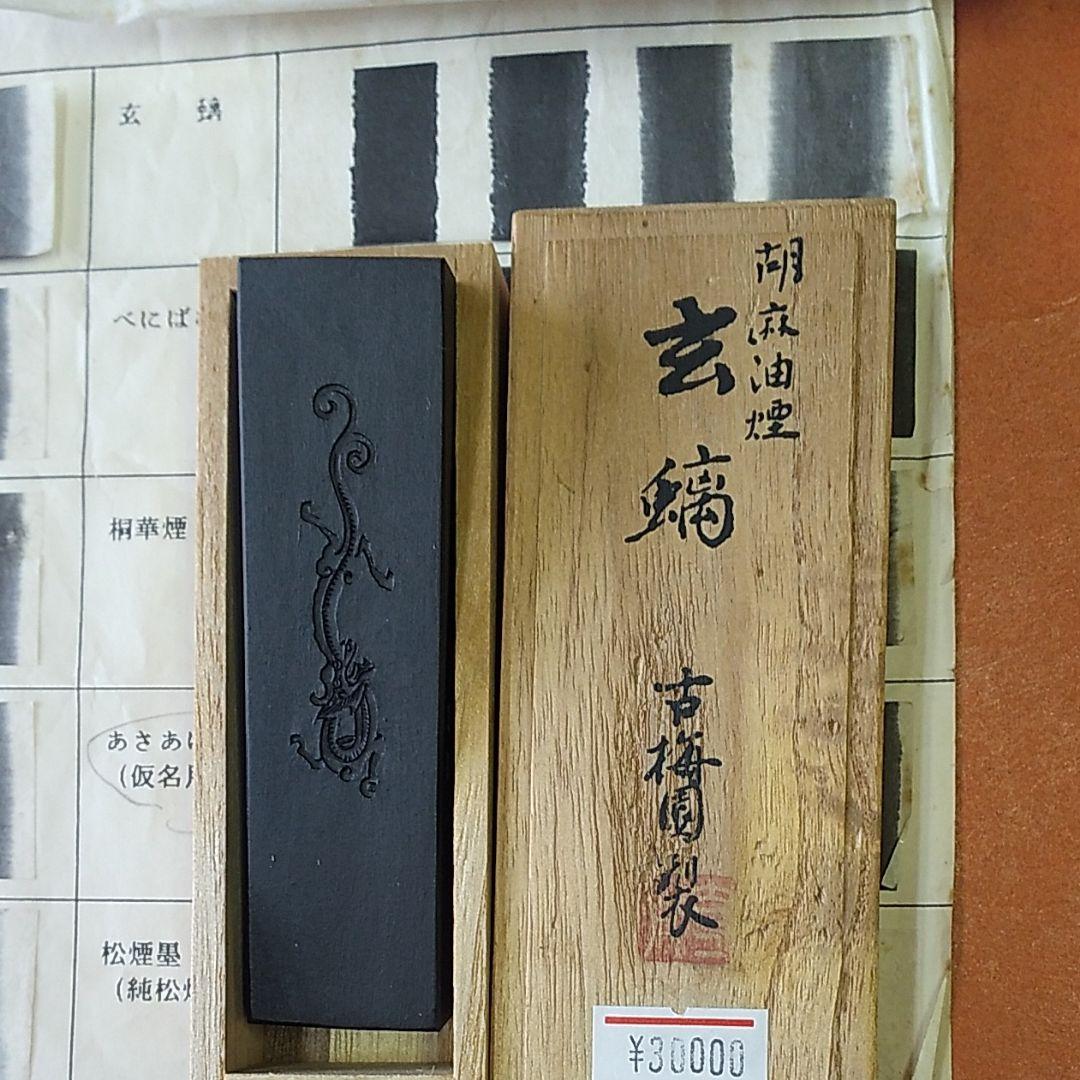 玄 螭
べにば
桐華煙
あさあ
(仮名用
松煙墨
(純松煙
胡麻油煙
玄螭
古梅園製
¥30000